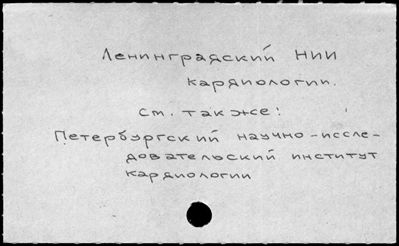 Ленинградский НИИ
кардиологии.
см. также:
Петербургский научно-иссле-
довательский институт
кардиологии